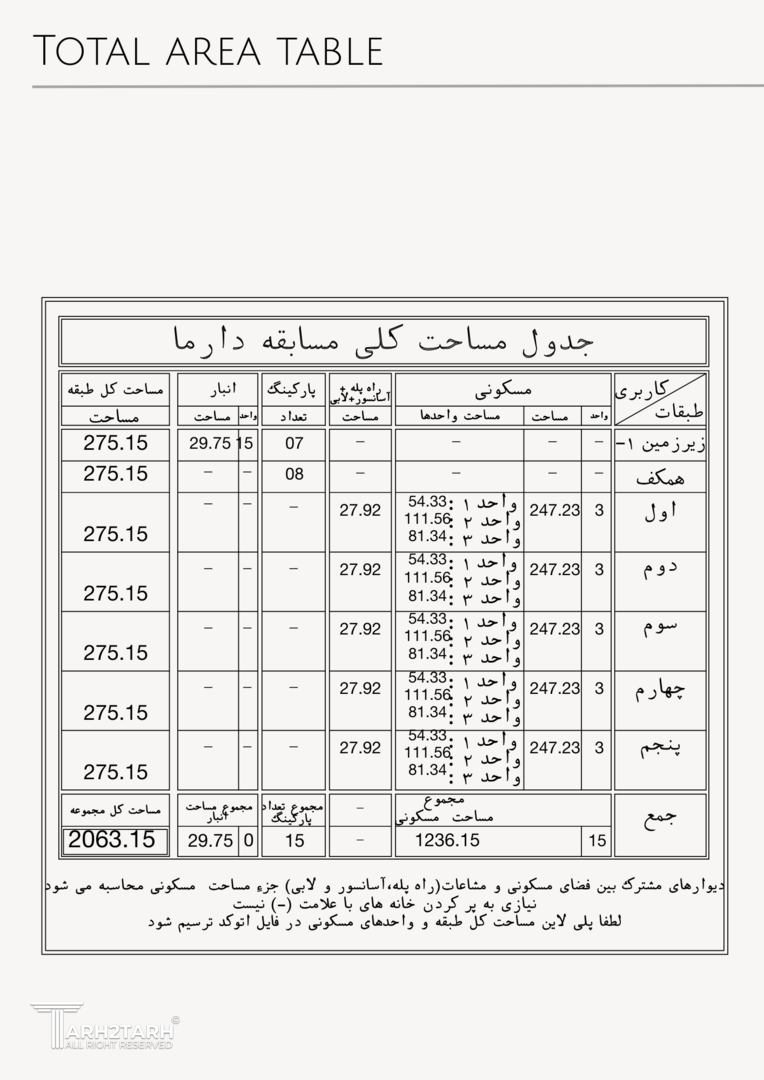 TOTAL AREA TABLE
جدول مساحت کلی مسابقه دارما
کاربری طبقات | مسکونی | راه پله + آسانسور+لابی | پارکینگ | انبار | مساحت کل طبقه
واحد | مساحت | مساحت واحدها | مساحت | تعداد | واحد | مساحت | مساحت
زیرزمین ۱- | – | – | – | – | 07 | 15 | 29.75 | 275.15
همکف | – | – | – | – | 08 | – | – | 275.15
اول | 3 | 247.23 | واحد ۱ :54.33 | 27.92 | – | – | – | 275.15
واحد ۲ :111.56
واحد ۳ :81.34
دوم | 3 | 247.23 | واحد ۱ :54.33 | 27.92 | – | – | – | 275.15
واحد ۲ :111.56
واحد ۳ :81.34
سوم | 3 | 247.23 | واحد ۱ :54.33 | 27.92 | – | – | – | 275.15
واحد ۲ :111.56
واحد ۳ :81.34
چهارم | 3 | 247.23 | واحد ۱ :54.33 | 27.92 | – | – | – | 275.15
واحد ۲ :111.56
واحد ۳ :81.34
پنجم | 3 | 247.23 | واحد ۱ :54.33 | 27.92 | – | – | – | 275.15
واحد ۲ :111.56
واحد ۳ :81.34
جمع | مجموع مساحت مسکونی | – | مجموع تعداد پارکینگ | مجموع مساحت انبار | مساحت کل مجموعه
15 | 1236.15 | – | 15 | 0 | 29.75 | 2063.15
دیوارهای مشترک بین فضای مسکونی و مشاعات(راه پله،آسانسور و لابی) جزء مساحت مسکونی محاسبه می شود
نیازی به پر کردن خانه های با علامت (–) نیست
لطفا پلی لاین مساحت کل طبقه و واحدهای مسکونی در فایل اتوکد ترسیم شود
TARH2TARH©
ALL RIGHT RESERVED